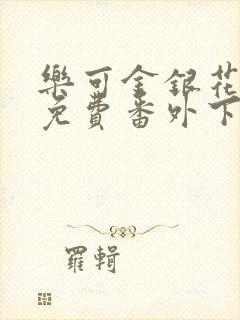 樂可金銀花
免費番外下
羅輯